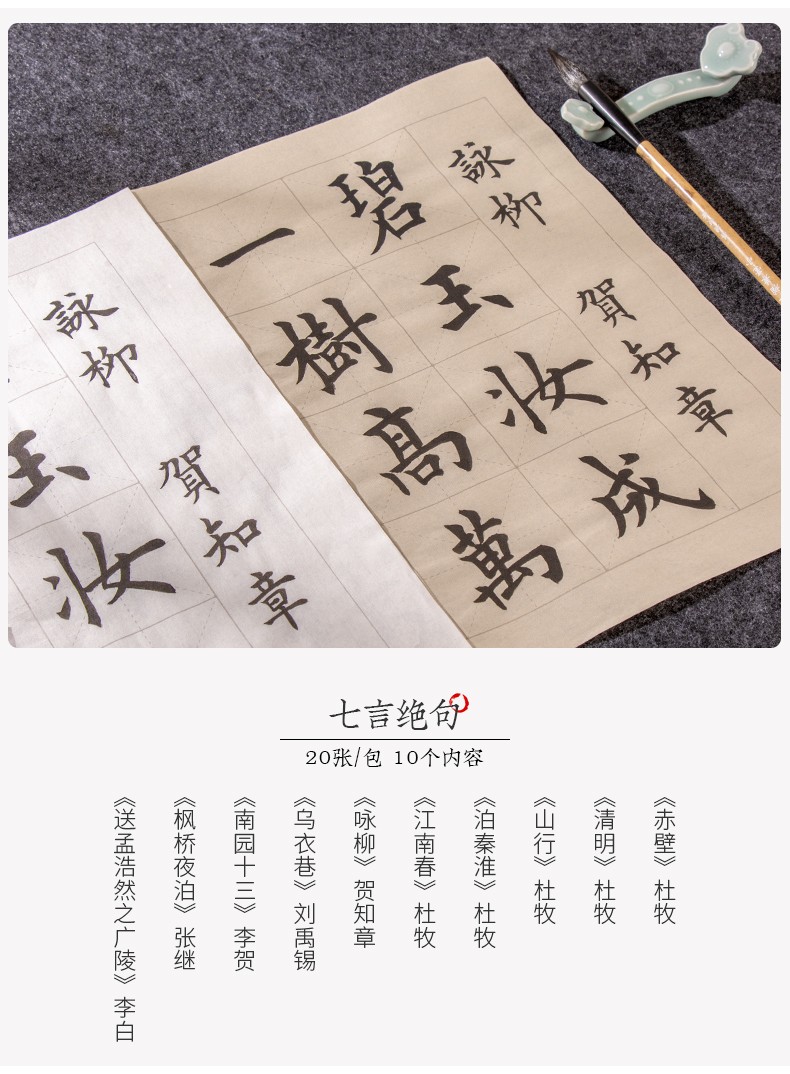 詠柳
賀知章
碧玉妝成
一樹高萬
詠柳
賀知章
玉妝
七言绝句
20张/包 10个内容
《赤壁》杜牧
《清明》杜牧
《山行》杜牧
《泊秦淮》杜牧
《江南春》杜牧
《咏柳》贺知章
《乌衣巷》刘禹锡
《南园十三》李贺
《枫桥夜泊》张继
《送孟浩然之广陵》李白